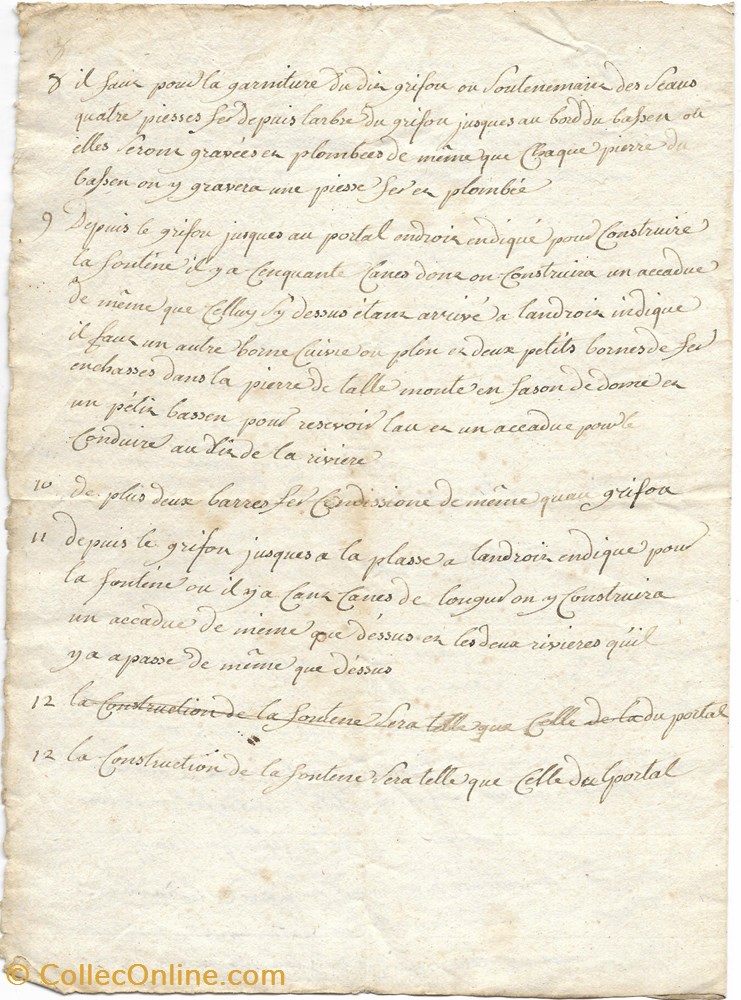 8 il faut pour la garniture du dit grifou ou Soutenemant des Seaux
quatre piesses fer depuis larbre du grifou jusques au bord du bassen ou
elles Seront gravées et plombées de même que Chaque pierre du
bassen on y gravera une piesse fer et plombée
9 Depuis le grifou jusques au portal endroit endiqué pour Construire
la fontêne il y a Cenquante Canes dont on Construira un accadue
de même que Celluy Sy dessus étant arrivé a landroit indique
il faut un autre borne Cuivre ou plon et deux petits bornes de fer
enchasses dans la pierre de talle monte en fason de dome et
un pétit bassen pour resevoir lau et un accadue pour le
Conduire au dit de la riviere
10 de plus deux barres fer Condissione de même quau grifou
11 depuis le grifou jusques a la plasse a landroit endique pour
la fontêne ou il y a Cant Canes de longur on y Construira
un accadue de meme que déssus et les deux rivieres quil
y a a passe de même que déssus
12 la Construction de la fontene Sera telle que Celle de la du portal
12 la Construction de la fontene Sera telle que Celle du portal
© CollecOnline.com